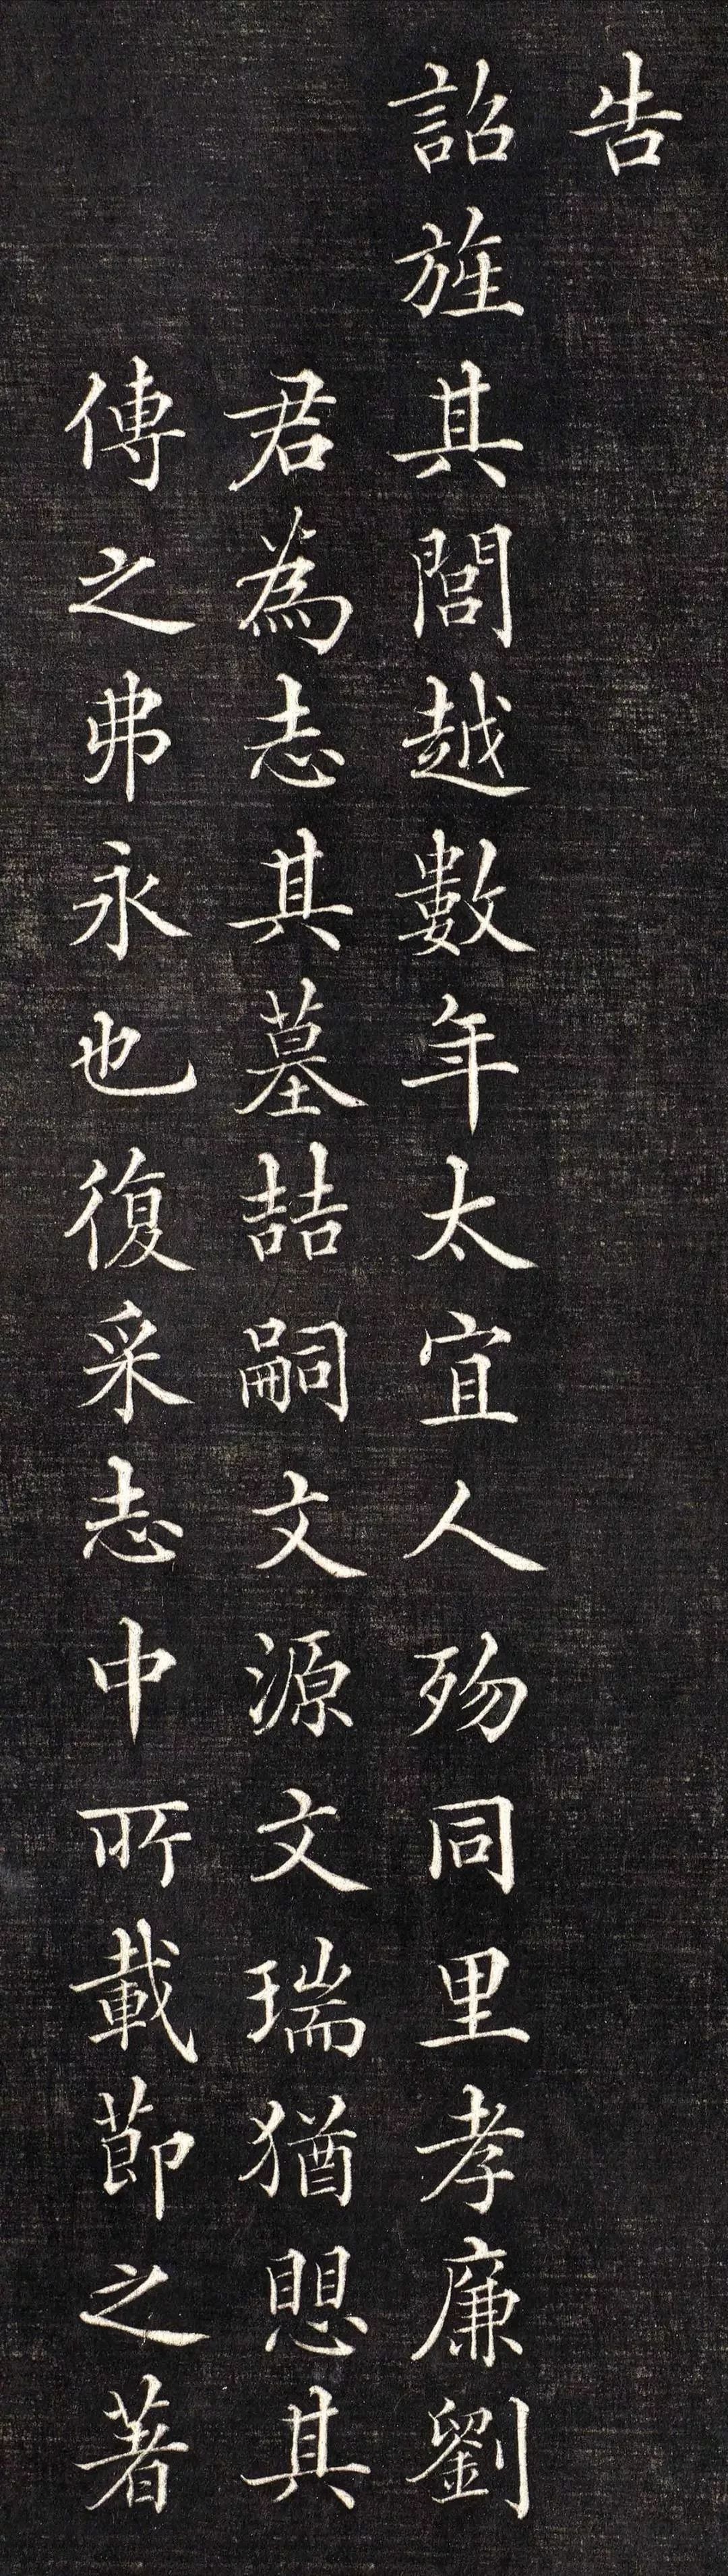 告
詔旌其閭越數年太宜人歾同里孝廉劉
君為志其墓喆嗣文源文瑞猶愳其
傳之弗永也復采志中所載節之著